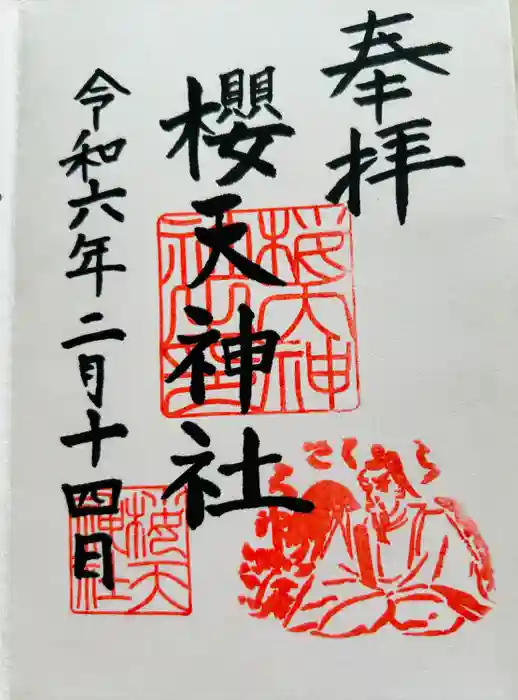 奉拝
櫻天神社
令和六年二月十四日
桜天神
社
桜天
神社
さくら